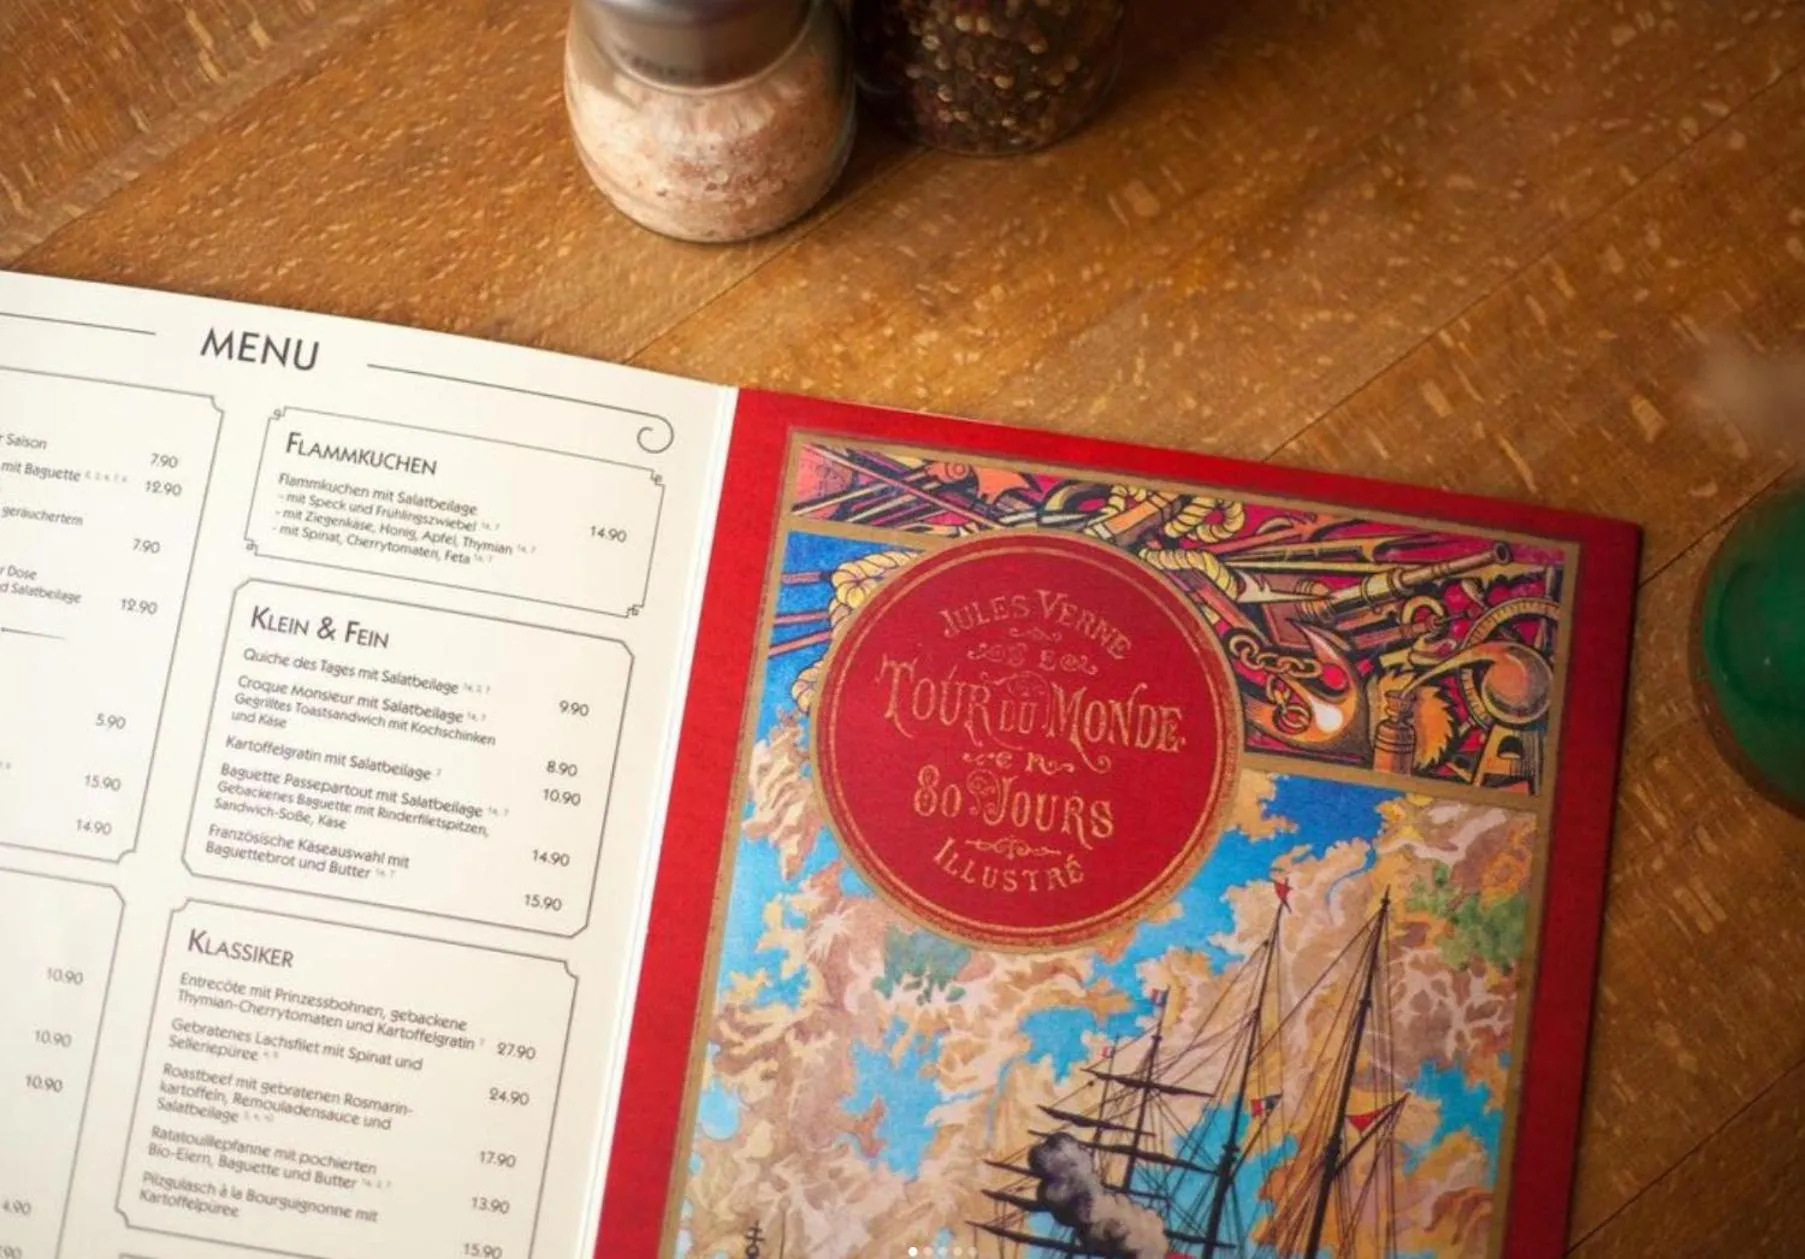 MENU
r Saison
7.90
mit Baguette
12.90
geräuchertem
7.90
r Dose
d Salatbeilage
12.90
5.90
15.90
14.90
10.90
10.90
10.90
4.90
FLAMMKUCHEN
Flammkuchen mit Salatbeilage
- mit Speck und Frühlingszwiebel 1a, 7
- mit Ziegenkäse, Honig, Apfel, Thymian 1a, 7
- mit Spinat, Cherrytomaten, Feta 1a, 7
14.90
KLEIN & FEIN
Quiche des Tages mit Salatbeilage 1a, 3, 7
9.90
Croque Monsieur mit Salatbeilage 1a, 7
Gegrilltes Toastsandwich mit Kochschinken
und Käse
8.90
Kartoffelgratin mit Salatbeilage 7
10.90
Baguette Passepartout mit Salatbeilage 1a, 7
Gebackenes Baguette mit Rinderfiletspitzen,
Sandwich-Soße, Käse
14.90
Französische Käseauswahl mit
Baguettebrot und Butter 1a, 7
15.90
KLASSIKER
Entrecôte mit Prinzessbohnen, gebackene
Thymian-Cherrytomaten und Kartoffelgratin 7
27.90
Gebratenes Lachsfilet mit Spinat und
Selleriepüree
24.90
Roastbeef mit gebratenen Rosmarin-
kartoffeln, Remouladensauce und
Salatbeilage
17.90
Ratatouillepfanne mit pochierten
Bio-Eiern, Baguette und Butter 1a, 3, 7
13.90
Pilzgulasch à la Bourguignonne mit
Kartoffelpüree
15.90
JULES VERNE
TOUR DU MONDE
EN
80 JOURS
ILLUSTRÉ